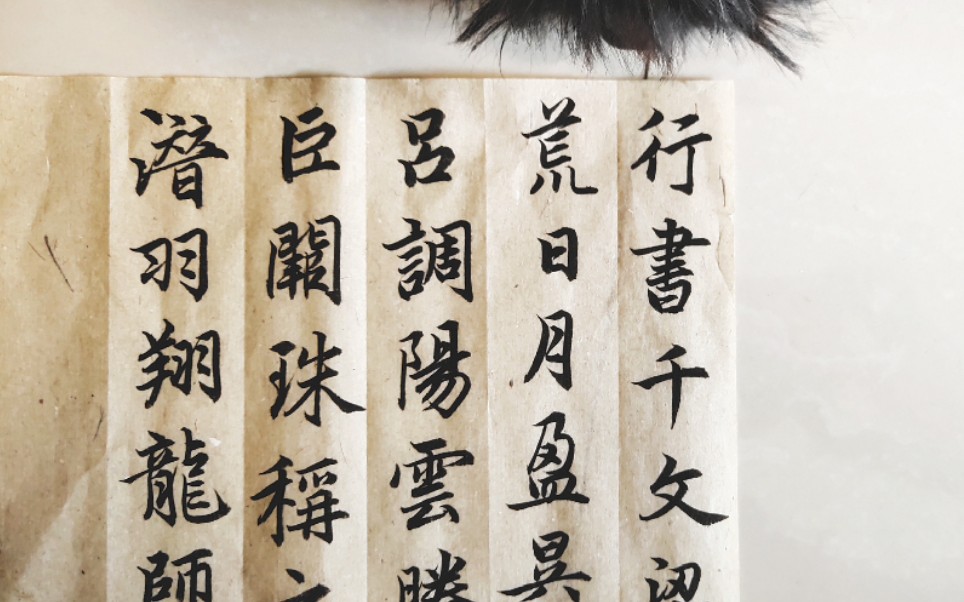 行書千文
荒日月盈昃
呂調陽雲騰
巨闕珠稱
潛羽翔龍師